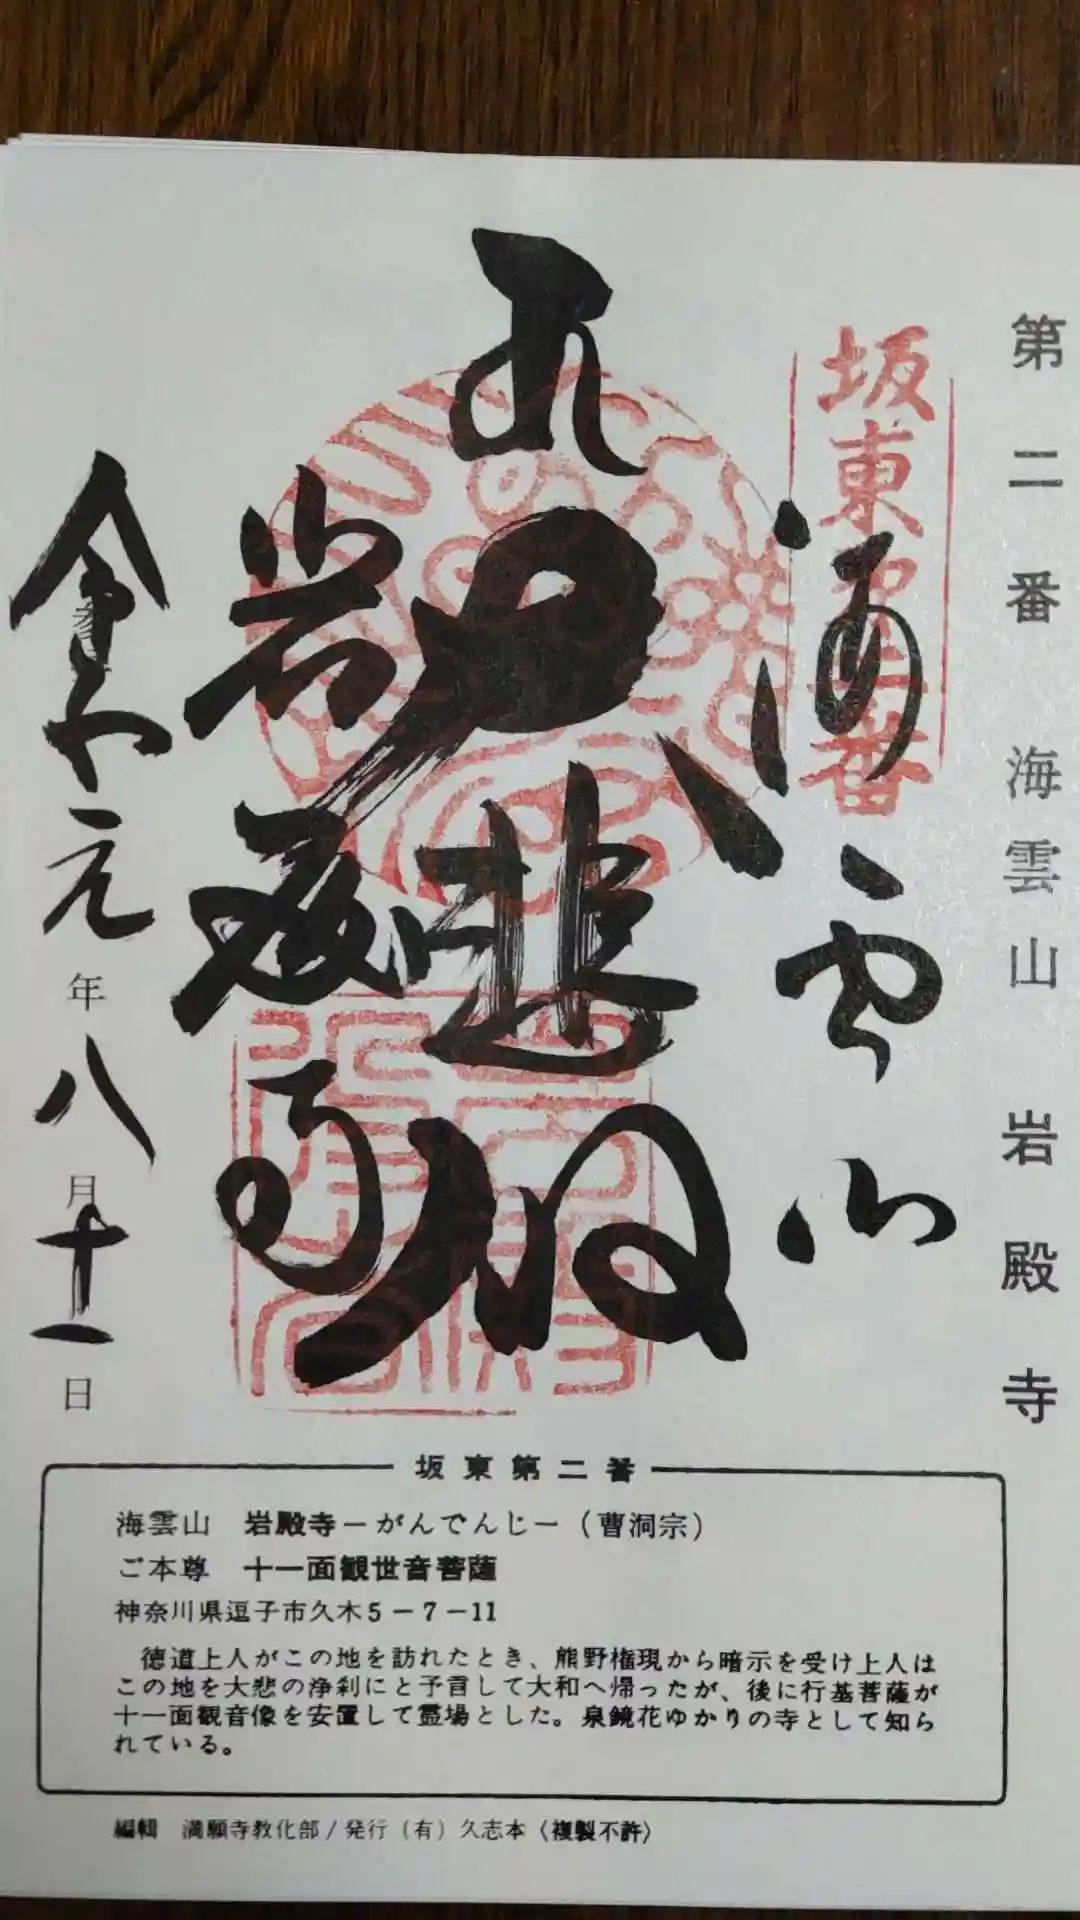 第二番 海雲山 岩殿寺
坂東第二番
海雲山
大悲殿
岩殿寺
令和元年八月十一日
坂東第二番
海雲山 岩殿寺－がんでんじ－（曹洞宗）
ご本尊 十一面観世音菩薩
神奈川県逗子市久木5－7－11
徳道上人がこの地を訪れたとき、熊野権現から暗示を受け上人は
この地を大悲の浄刹にと予言して大和へ帰ったが、後に行基菩薩が
十一面観音像を安置して霊場とした。泉鏡花ゆかりの寺として知ら
れている。
編輯 満願寺教化部/発行（有）久志本〈複製不許〉